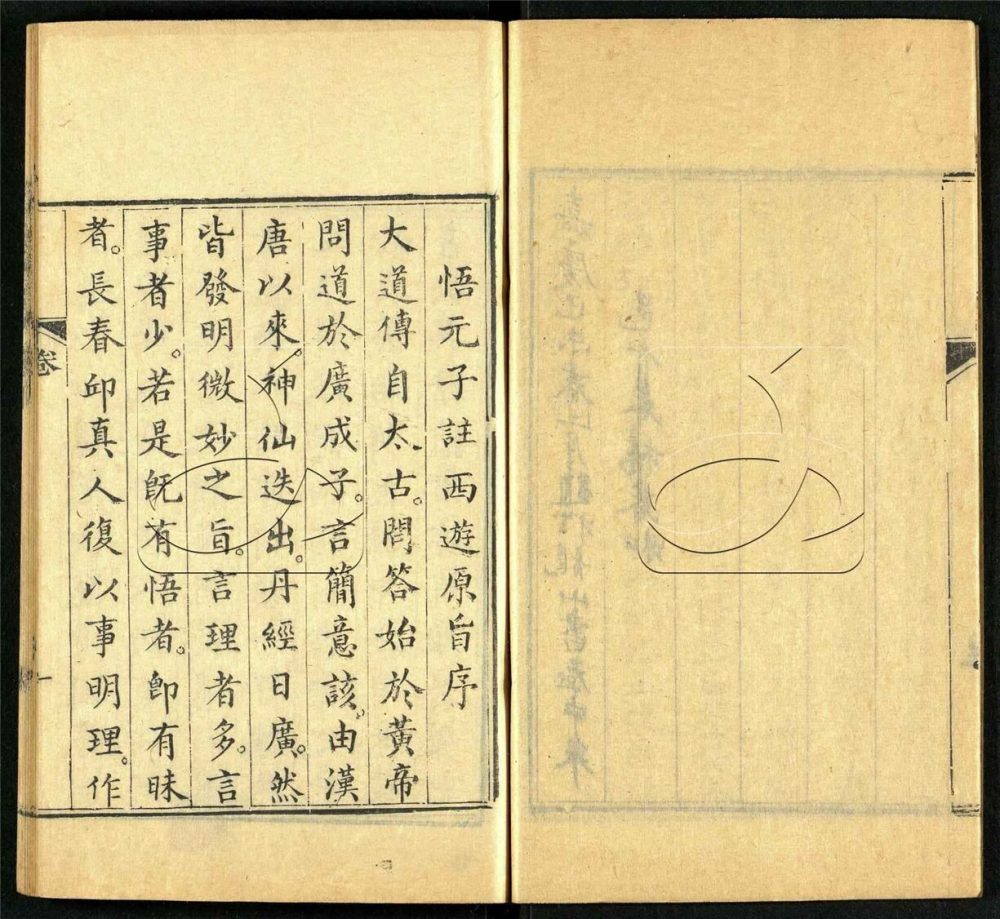 悟元子註西遊原旨序
大道傳自太古。問答始於黃帝
問道於廣成子。言簡意該。由漢
唐以來。神仙迭出。丹經日廣。然
皆發明微妙之旨。言理者多。言
事者少。若是旣有悟者。卽有昧
者。長春邱真人復以事明理。作
卷
一